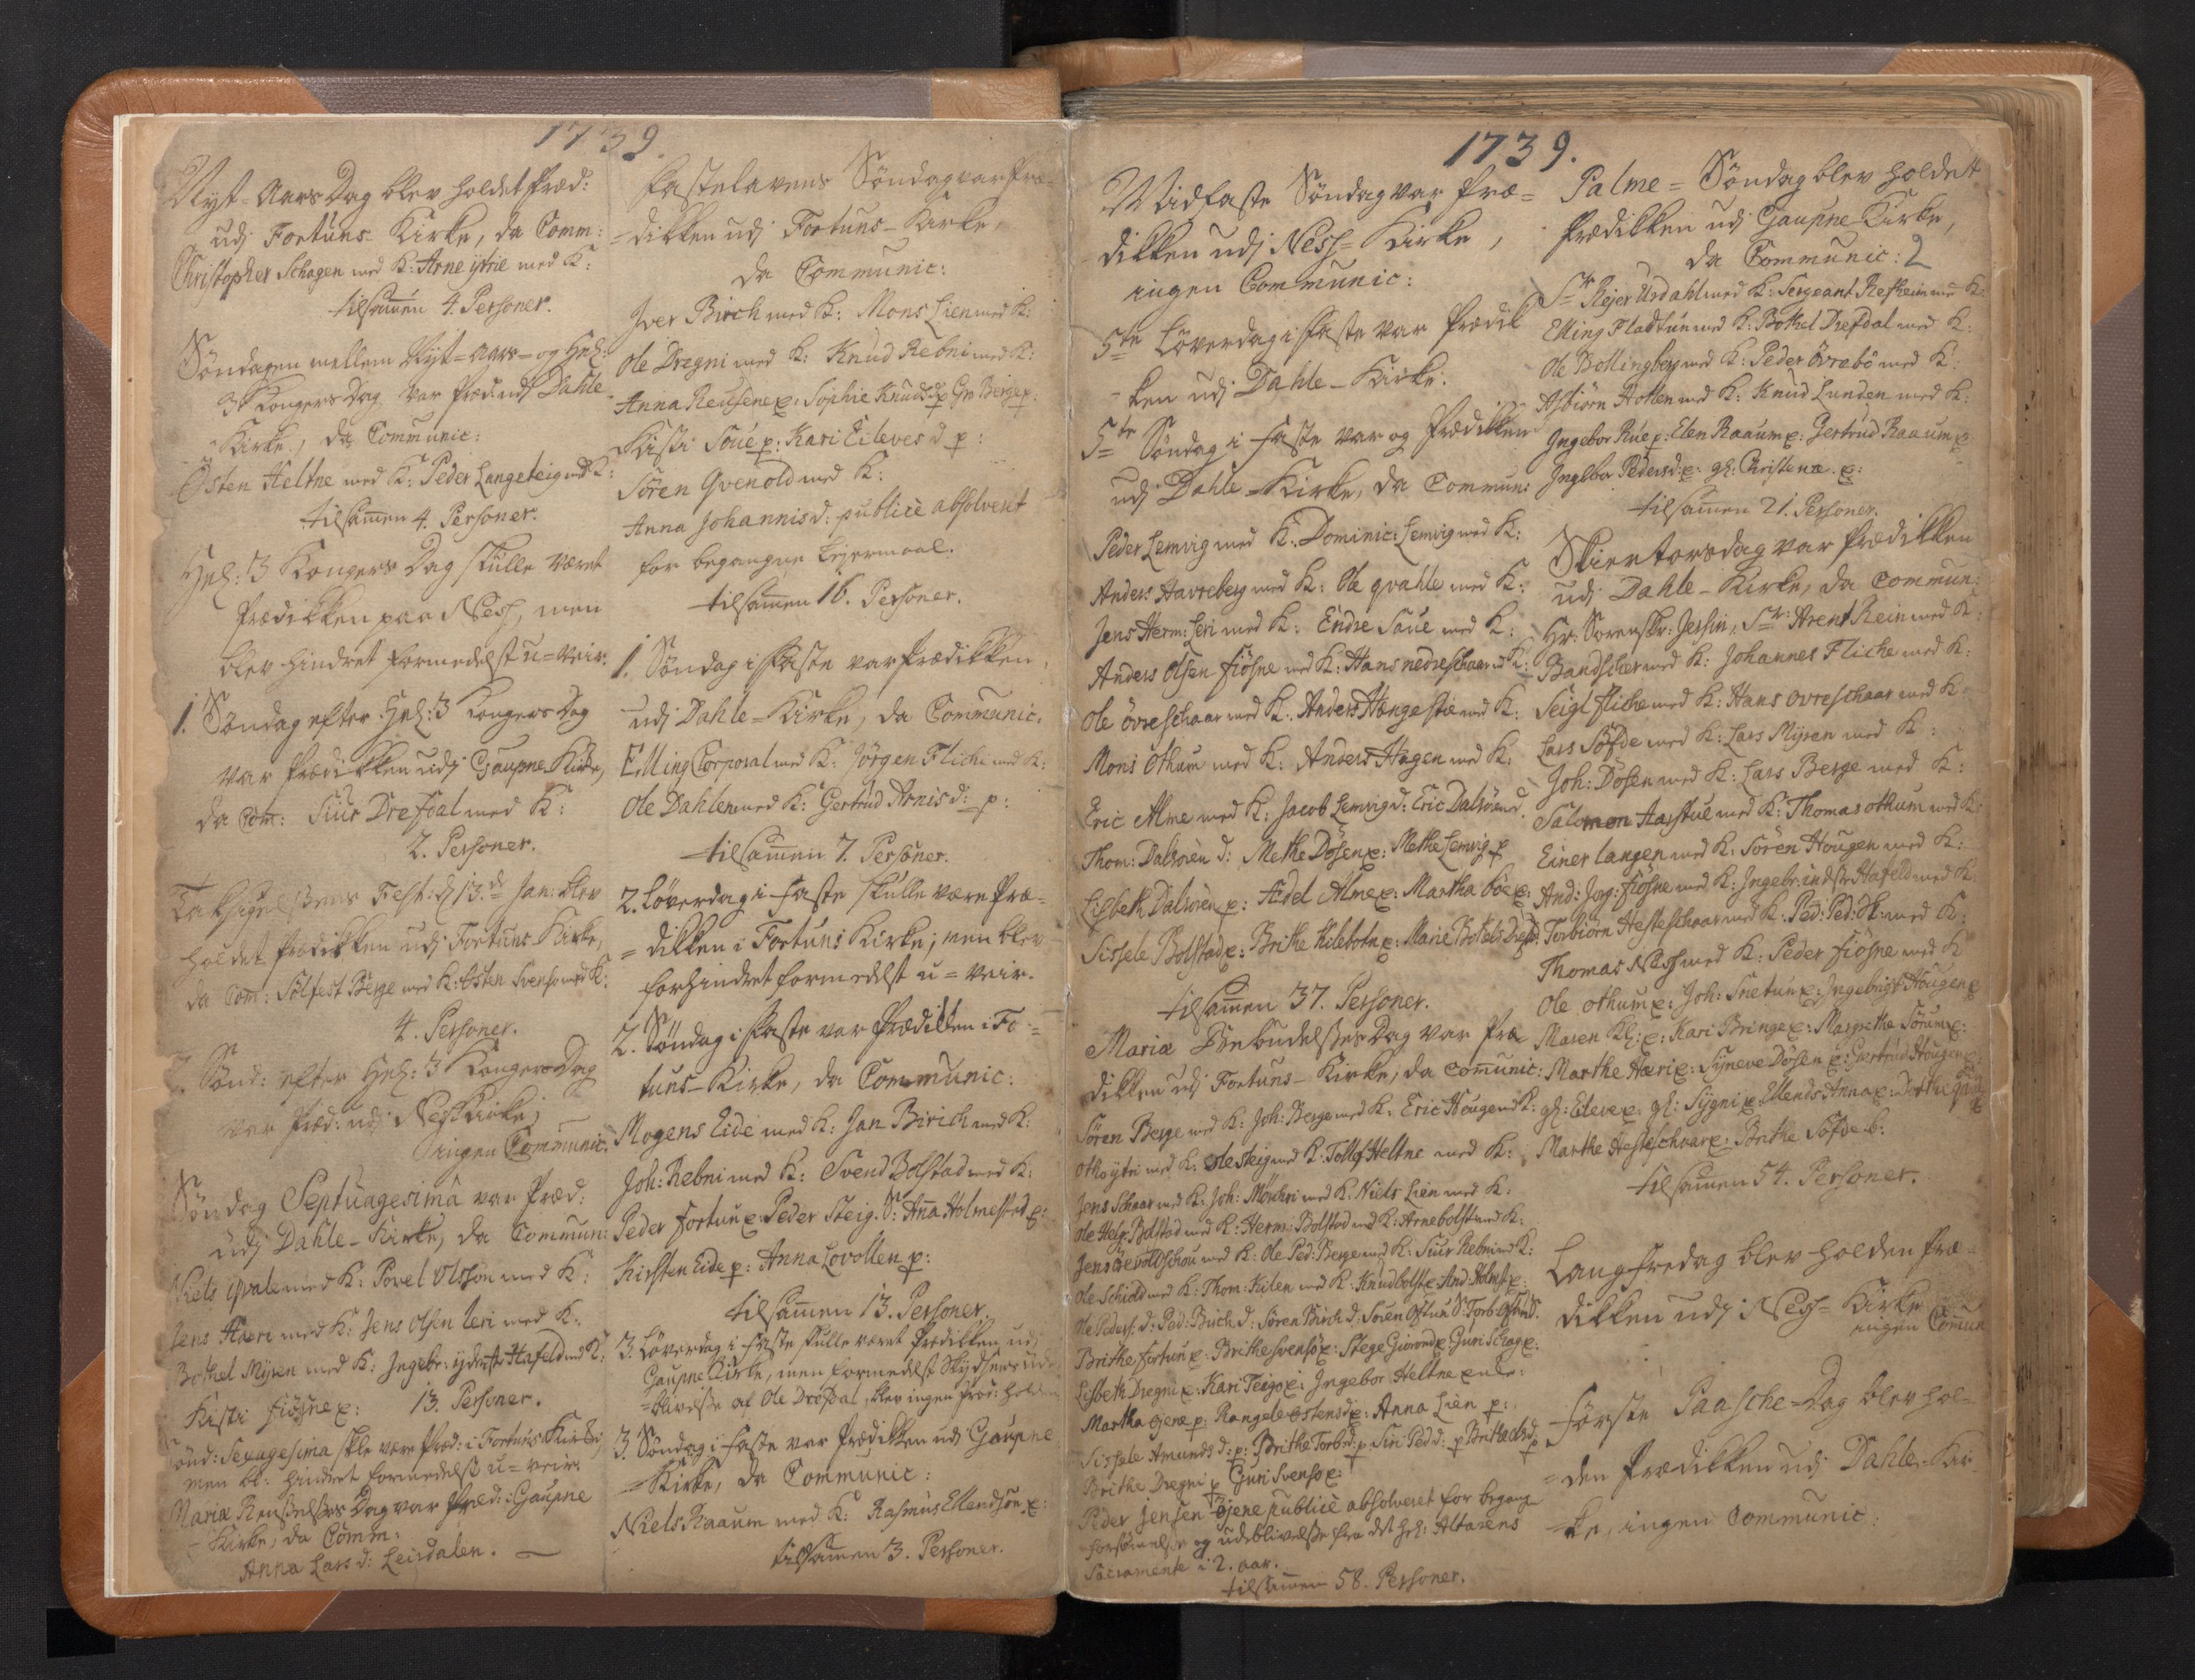 1739.
Nyt-Aars Dag blev holdet Præd:
udj Fortuns-Kirke, da Comm:
Christopher Schagen med K: Arne ijttrie med K:
tilsamen 4. Personer.
Søndagen mellem Nyt-aars- og Hel:
3 Kongers Dag var Præd: udj Dahle
Kirke, da Communic:
Østen Heltne med K: Peder Langeteig med K:
tilsamen 4. Personer.
Hel: 3 Kongers Dag skulle været
Prædikken paa Ness, men
blev hindret formedelst u=veir.
1. Søndag efter Hel: 3 Kongers Dag
var Prædikken udj Gaupne Kirke,
da Com: Siur Drefdal med K:
2. Personer.
Taksigelsens Fest: d 13.de Jan: blev
holdet Prædikken udj Fortuns Kirke,
da Com: Sølfest Berge med K: Østen Svensø med K:
4. Personer.
2. Sønd: efter Hel: 3 Kongers Dag
var Præd: udj Ness Kirke,
ingen Communic:
Søndag Septuagesima var Præd:
udj Dahle-Kirke, da Commun:
Niels qvale med K: Povel Olsson med K:
Jens Hæri med K: Jens Olsen Leri med K:
Bothel Mÿren med K: Ingebr: ijderste Hafeld med K:
Kisti fiøsne p: 13. Personer.
Sønd: Sexagesima skle være Præd: i Fortuns Kirke,
men bl: hindret formedelst u=veir.
Mariæ Renselses Dag var Præd: i Gaupne
Kirke, da Comm:
Anna Lars d: Leirdalen.
Fastelavens Søndag var Præ=
=dikken udj Fortuns-Kirke,
da Communic:
Iver Birch med K: Mons Lien med K:
Ole Dregni med K: Knud Rebni med K:
Anna Reusene p: Sophie Knudsd p: Gu Berge p:
Kisti Soue p: Kari Eileves d p:
Søren Qvenold med K:
Anna Johannis d: publicè absolvert
for begangne Leiermaal.
tilsamen 16. Personer.
1. Søndag i Faste var Prædikken
udj Dahle-Kirke, da Communic:
Elling Corporal med K: Jørgen Fliche med K:
Ole Dahlen med K: Gertrud Arnis d: p:
tilsamen 7. Personer.
2. Løverdag i Faste skulle være Præ=
=dikken i Fortuns Kirke; men blev
forhindret formedelst u=veir.
2. Søndag i Faste var Prædikken i For=
tuns-Kirke, da Communic:
Mogens Eide med K: Jan Birich med K:
Joh: Rebni med K: Svend Bolstad med K:
Peder Fortun p: Peder Steig S: Anna Holmestad p:
Kirsten Eide p: Anna Lovollen p:
tilsamen 13. Personer.
3. Løverdag i Faste skulle været Prædikken udj
Gaupne Kirke, men formedelst Skydsens ude=
=blivelse af Ole Drefdal, blev ingen Præd: holden
3. Søndag i Faste var Prædikken udj Gaupne
=Kirke, da Communic:
Niels Raaum med K: Rasmus Ellendsøn p:
tilsamen 3. Personer.
1739.
Midfaste Søndag var Præ=
dikken udj Ness=Kirke,
ingen Communic:
5te Løverdag i Faste var Prædik
ken udj Dahle-Kirke.
5te Søndag i Faste var og Prædikken
udj Dahle-Kirke, da Commun:
Peder Lemvig med K: Dominic: Lemvig med K:
Anders Havreberg med K: Ole qvahle med K:
Jens Herm: Leri med K: Endre Saue med K:
Anders Olsen fiøsne med K: Hans nedreschaar med K:
Ole øvreschaar med K: Anders Hængestie med K:
Mons Othum med K: Anders Hagen med K:
Eric Alme med K: Jacob Lemvig d: Eric Dalsøren d:
Thom: Dalsøren d: Methe Døsen p: Methe Lemvig p
Lisbeth Dalsøren p: Adel Alme p: Martha bøe p:
Sissele Bolstad p: Brithe Kilebotn p: Marie Botels Drefd:
tilsamen 37. Personer.
Mariæ Bebudelses Dag var Præ
dikken udj Fortuns-Kirke, da Communic:
Søren Berge med K: Joh: Berge med K: Eric Hougen med K:
Oth øÿtri med K: Ole Steig med K: Tollef Heltne med K:
Jens Schaar med K: Joh: Mønkri med K: Niels Lien med K:
Ole Helg: Bolstad med K: Herm: Bolstad med K: Arne bolst: med K:
Jens Bevoldschou med K: Ole Ped: Berge med K: Siur Rebni med K:
Ole Schiold med K: Thom: Kilen med K: Knud bolst: p: And: Holmst p:
Ole Peders: d: Ped: Birch d: Søren Birch d: Søren Oftun S: Torb: Oftun S:
Brithe fortun p: Brithe Svensø p: Stege Giørond p: Guri Schag p:
Lisbeth Dregni p: Kari Teigo p: Ingebor Heltne enke:
Martha øjene p: Rangele østensd p: Anna Lien p:
Sissele Amunds d: p: Brithe Torbrd: p: Siri Ped d: p Brithe Olsd: p
Brithe Dregni p Guri Svensø p:
Peder Jensen øjene publicè absolveret for begang=
forsømmelse og udeblivelse fra det Hel: Altarens
Sacramente i 2. aar.
tilsamen 58. Personer.
Palme=Søndag blev holdet
Prædikken udj Gaupne Kirke,
da Communic:
Sr Rejer Urdahl med K: Sergeant Refheim med K:
Elling Fladtun med K: Bothel Drefdal med K:
Ole Bollingberg med K: Peder øvrebø med K:
Asbiørn Molten med K: Knud Lunden med K:
Ingebor Rue p: Elen Raaum p: Gertrud Raaum p
Ingebor Pedersd: p: gl: Christenæ p:
tilsamen 21. Personer.
Skiertorsdag var Prædikken
udj Dahle-Kirke, da Commun:
Hr: Sorenskr: Jersin, Sr: Arent Rein med K:
Bandscher med K: Johannes Fliche med K:
Seigl fliche med K: Hans ovreschaar med K:
Lars Søfde med K: Lars Mÿren med K:
Joh: Døsen med K: Lars Berge med K:
Salomon Aarstue med K: Thomas othum med K:
Einer langen med K: Søren Hougen med K:
And: Jørg: fiøsne med K: Ingebr: inderste Hafeld med K:
Torbiørn Hesteschaar med K: Ped: Ped: dk: med K:
Thomas Ness med K: Peder fiøsne med K
Ole othum p: Joh: Snetun p: Ingebrigt Hougen p
Maren Kl: p: Kari Bringe p: Margrethe Sørum p:
Marthe Hæri p: Sÿneve Døsen p: Gertrud Hougen p:
gl: Eileve p: gl: Sÿgni p: Ellends Anna p: Dorthe
Marthe Hesteschaar p: Brithe Søfde b:
tilsamen 54. Personer.
Langfredag blev holden Præ=
dikken udj Ness=Kirke
ingen Commun
Første Paasche-Dag blev hol=
=den Prædikken udj Dahle-Kir
=ke, ingen Communic: